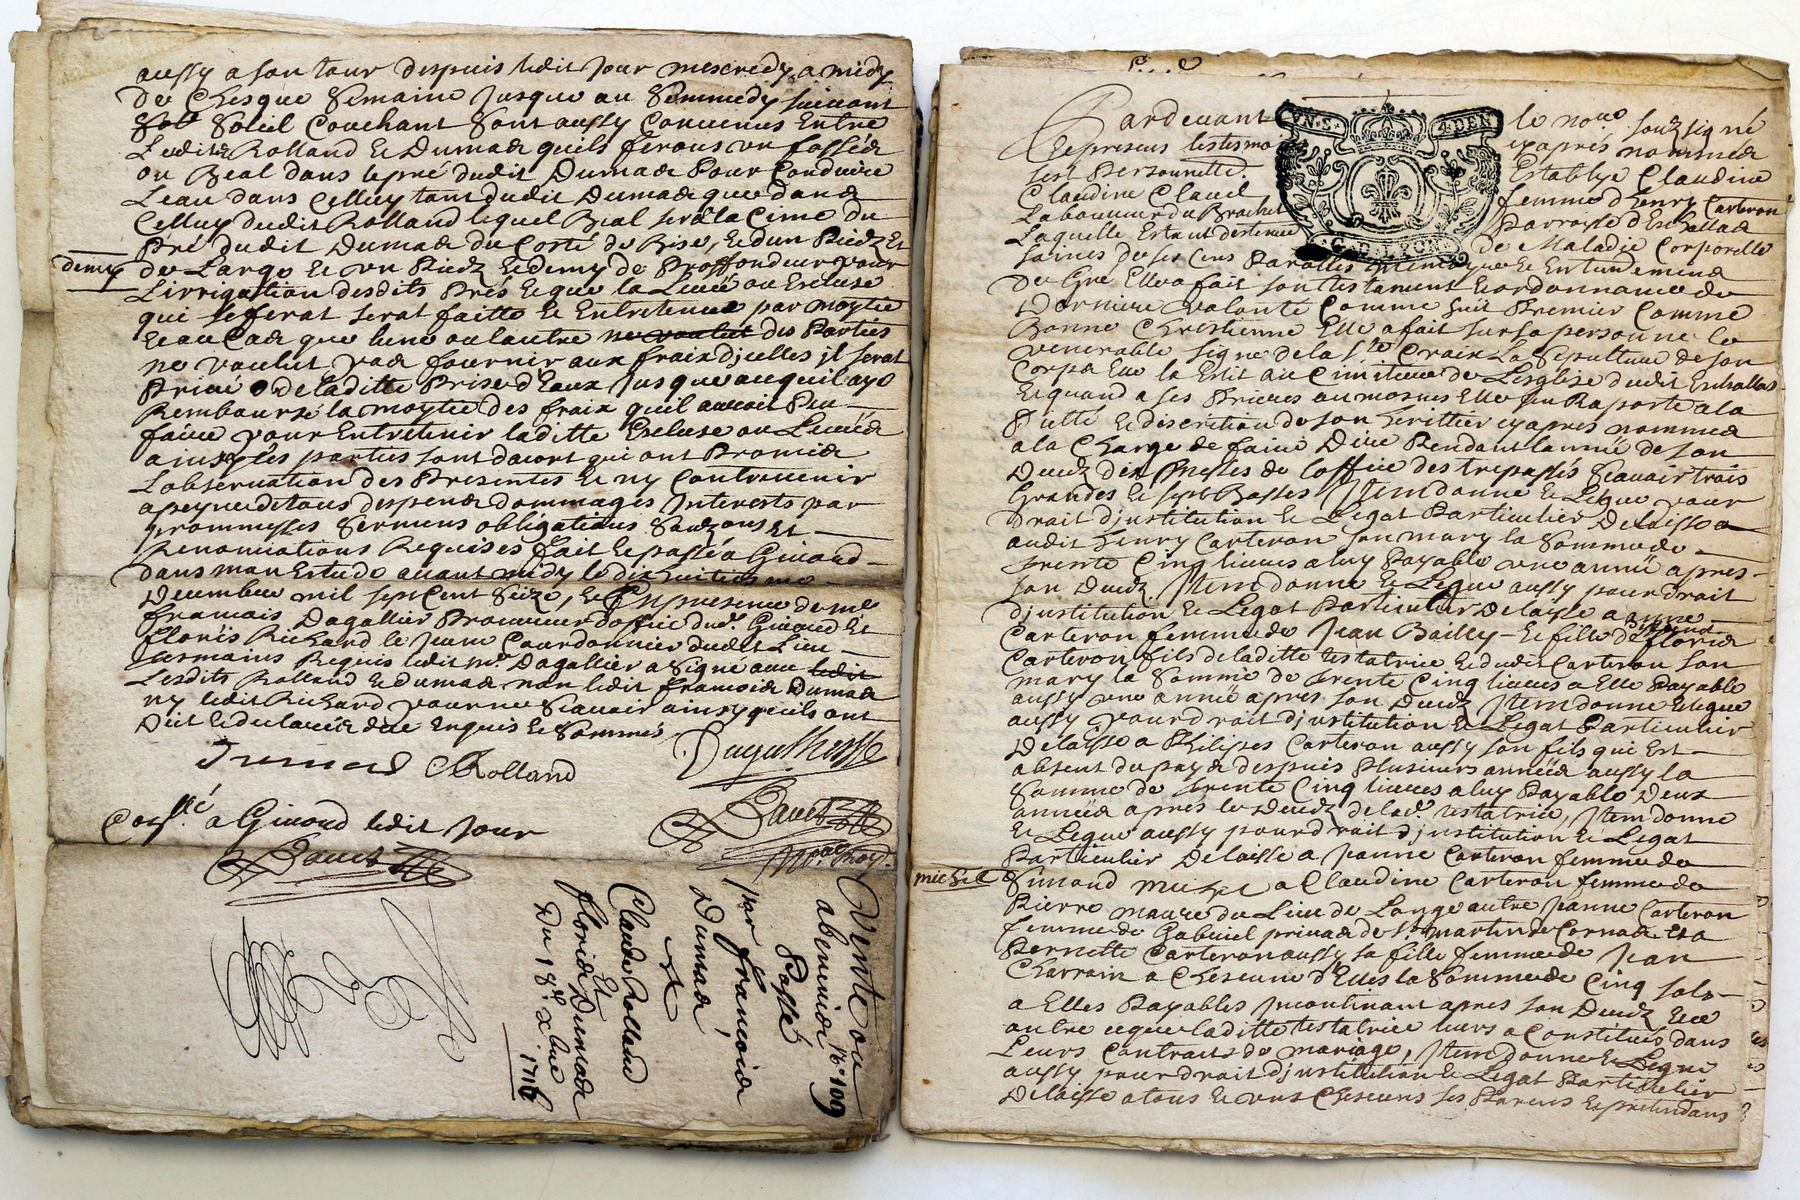 aussy a son tour despuis ledit jour mescredy a midy
de Chesque Semaine jusque au Sammedy suivant
Soleil Couchant Sont aussy Convenus Entre
Ledits Rolland & Dumas quils feront un fossé
ou Beal dans le pré dudit Dumas Pour Conduire
Leau dans Celluy tant dudit Dumas que dans
Celluy dudit Rolland lequel Beal sera a la Cime du
Pré dudit Dumas du Costé de Bise, & dun Piedz Et
demy
de Large & un Piedz & demy de Proffondeur pour
Lirrigation desdits Prés & que la Levée ou Escluse
qui se ferat serat faitte & Entretenue par moytié
& au Cas que lune ou lautre ne voulut des Parties
ne voulut pas fournir aux fraix djcelles jl serat
Privé de laditte Prise d'Eaux jusque aquil aye
Rembourse la moytié des fraix quil auroit Peu
faire pour Entretenir laditte Escluse ou Levée
ainsy les parties sont dacort qui ont Promis
Lobservation des Presentes & ny Contrevenir
a peyne de tous despens dommages Interests par
prommesses Sermens obligations Et
Renonciations Requises fait & passé a Givord
dans mon Estude avant midy le dixhuitiesme
Decembre mil sept Cent Seize, & En presence de me
francois Dagallier Procureur doffice dud. Givord Et
floris Richard le jeune Cordonnier dudit Lieu
tesmoins Requis ledit mr Dagallier a Signé avec ledit
Lesdits Rolland & dumas non ledit francois Dumas
ny ledit Richard pour ne Scavoir ainsy quils ont
Dit & declairé de ce Enquis & Sommés
Dumas CRolland
a Givord ledit jour
Vente ou
abenevis No 109
Passé
par francois
Dumas
Claude Rolland
Et
floris Dumas
Du 18e xbre
1716
VN.S. 4.DEN
G.D.LYON
Pardevant le nore souzsigné
& presens les tesmoins cy aprés nommés
fust Personnelle. Establye Claudine
Claudine Claud femme d'henry Carteron
Laboureur du Brachet Parroisse d'Eschallas
Laquelle Estant destenue de Maladie Corporelle
saines de ses Cens Parolles memoyre & Entendement
de Gré Elle a fait son testament & ordonnance de
Derniere Volonté Comme suit Premier Comme
Bonne Chrestienne Elle a fait sur sa personne le
venerable signe de la Ste Croix La Sepulture de son
Corps Elle la Eslit au Cimetiere de Lesglise dudit Eschallas
& quand a ses Prieres aumosnes Elle sen Raporte a la
Pietté & discretion de son heritier cy apres nommé
a la Charge de faire Dire Pendant lannée de son
Decedz dix Messes de l'office des trepassés Scavoir trois
Grandes & sept Basses Jtem donne & Legue pour
Droit djnstitution & Legat Particulier Delaisse a
audit henry Carteron son mary la Somme de
trente Cinq livres a luy Payable une année apres
son Decedz. Jtem donne & Legue aussy pour droit
djnstitution & Legat Particulier Delaisse a
Carteron femme de Jean Bailly & fille de floris
Carteron fils de laditte testatrice & dudit Carteron son
mary la Somme de trente Cinq livres a Elle Payable
aussy une année apres son Decedz Jtem donne & legue
aussy pour droit djnstitution & Legat Particulier
Delaisse a Philipes Carteron aussy son fils qui Est
absent du pays despuis Plusieurs années aussy la
Somme de trente Cinq livres a luy Payable Deux
années apres le Decedz de lad. testatrice, Jtem donne
& Legue aussy pour droit djnstitution & Legat
Particulier Delaisse a Janne Carteron femme de
michel
Simond michel a Claudine Carteron femme de
Pierre maure du Lieu de Longe autre Janne Carteron
femme de Gabriel privas de St martin de Cornas Et a
Pernette Carteron aussy sa fille femme de Jean
Charrain a Chescune d'Elles la Somme de Cinq sols
a Elles Payables jncontinant apres son Decedz & ce
outre ce que laditte testatrice leurs a Constitués dans
Leurs Contraits de mariage, Jtem donne & Legue
aussy pour droit djnstitution & Legat Particulier
Delaisse a tous & uns Chescuns ses Parens & pretendans